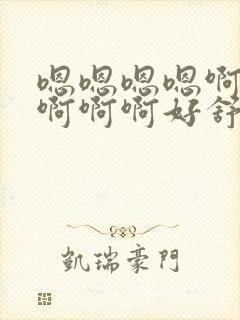 嗯嗯嗯嗯啊
啊啊啊好舒
凯瑞豪門